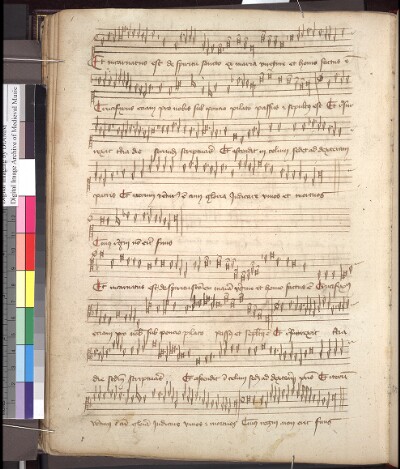 Et incarnatus est de spiritu sancto ex maria virgine et homo factus e
Crucifixus etiam pro nobis sub pontio pilato passus & sepultus est Et resur
rexit tercia die secundum scripturas Et ascendit in celum sedet ad dexteram
patris Et iterum venturus est cum gloria Iudicare vivos et mortuos
Cuius regni non erit finis
Et incarnatus est de spiritu sancto ex maria virgine et homo factus est Crucifixus
etiam pro nobis sub pontio pilato passus et sepultus Et resurrexit tercia
die secundum scripturas Et ascendit in celum sedet ad dexteram patris Et iterum
venturus cum gloria Iudicare vivos & mortuos Cuius regni non erit finis
Digital Image Archive of Medieval Music